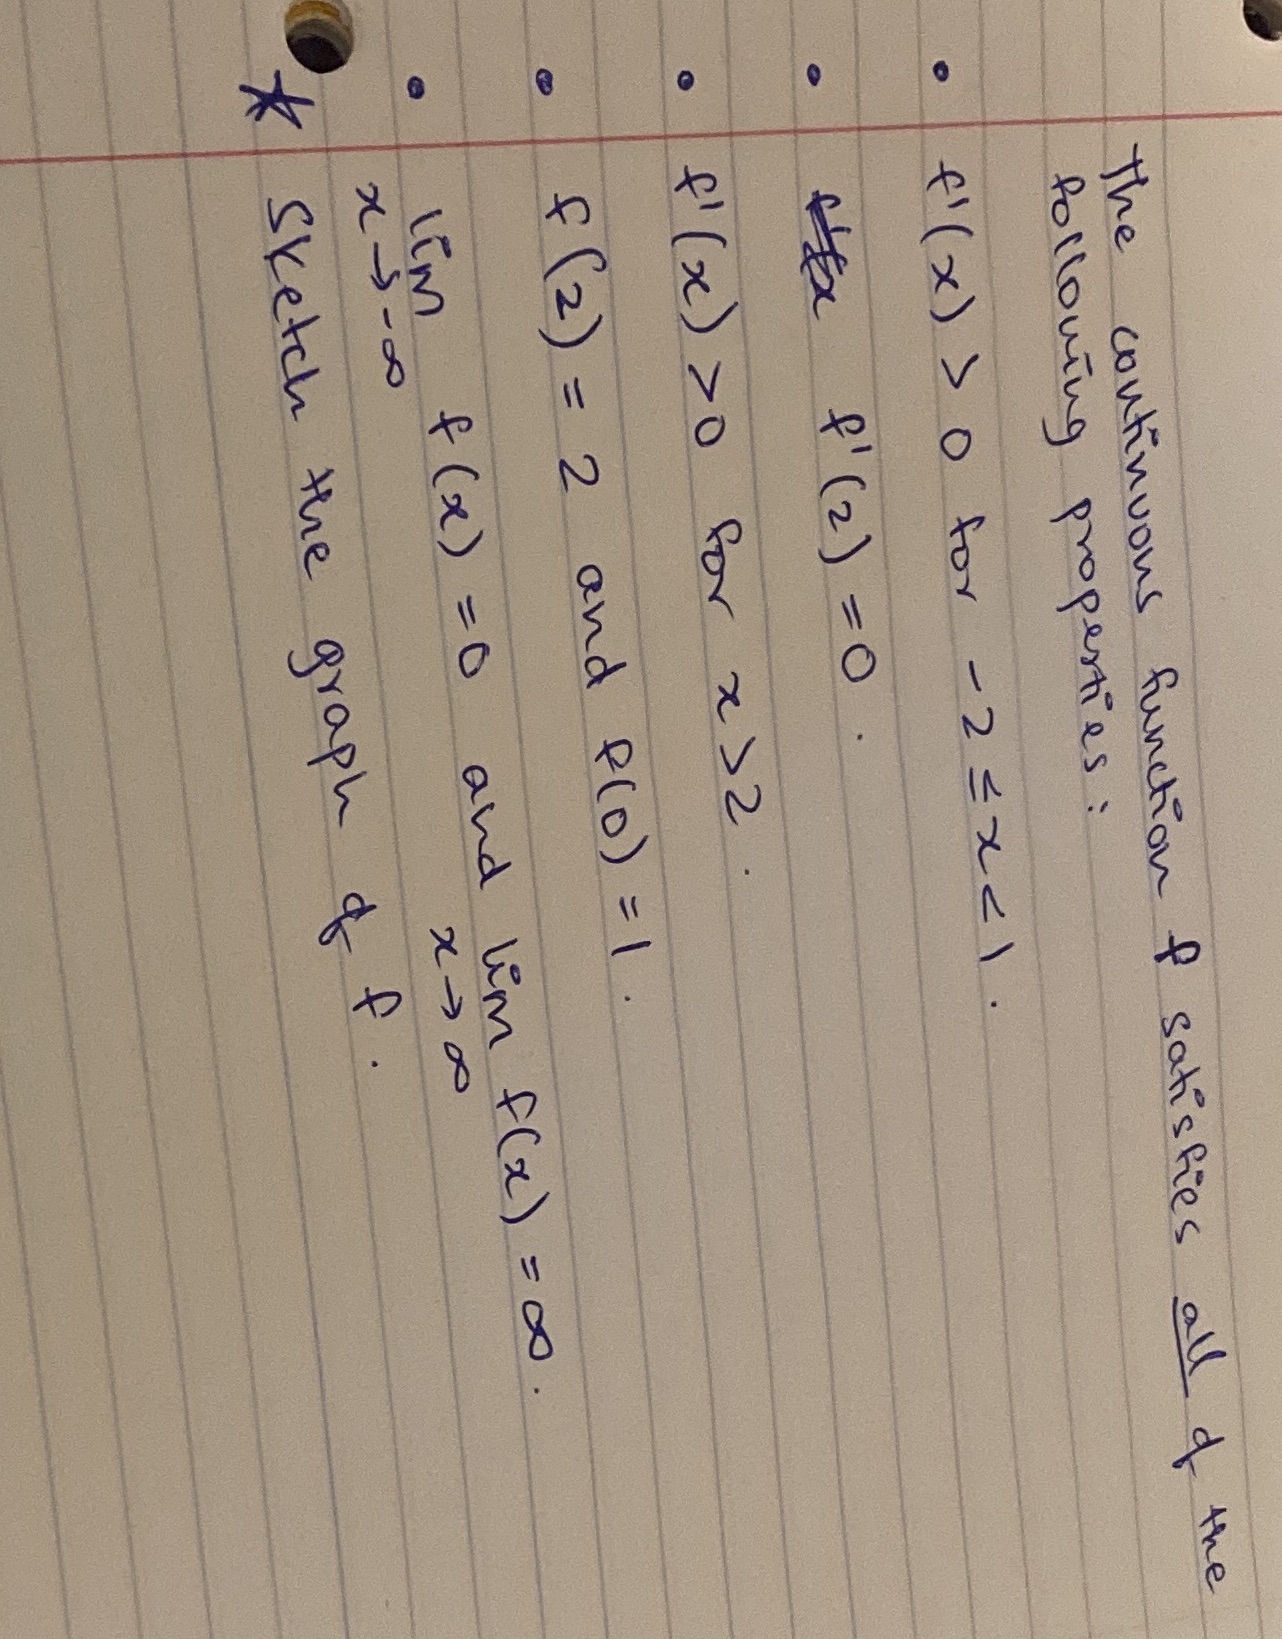 The continuous function f satisfies all of the
following properties:
• f'(x) > 0 for -2 ≤ x < 1.
• f'(2) = 0.
• f'(x) > 0 for x > 2.
• f(2) = 2 and f(0) = 1.
• lim f(x) = 0 and lim f(x) = ∞.
x→-∞ x→∞
* Sketch the graph of f.